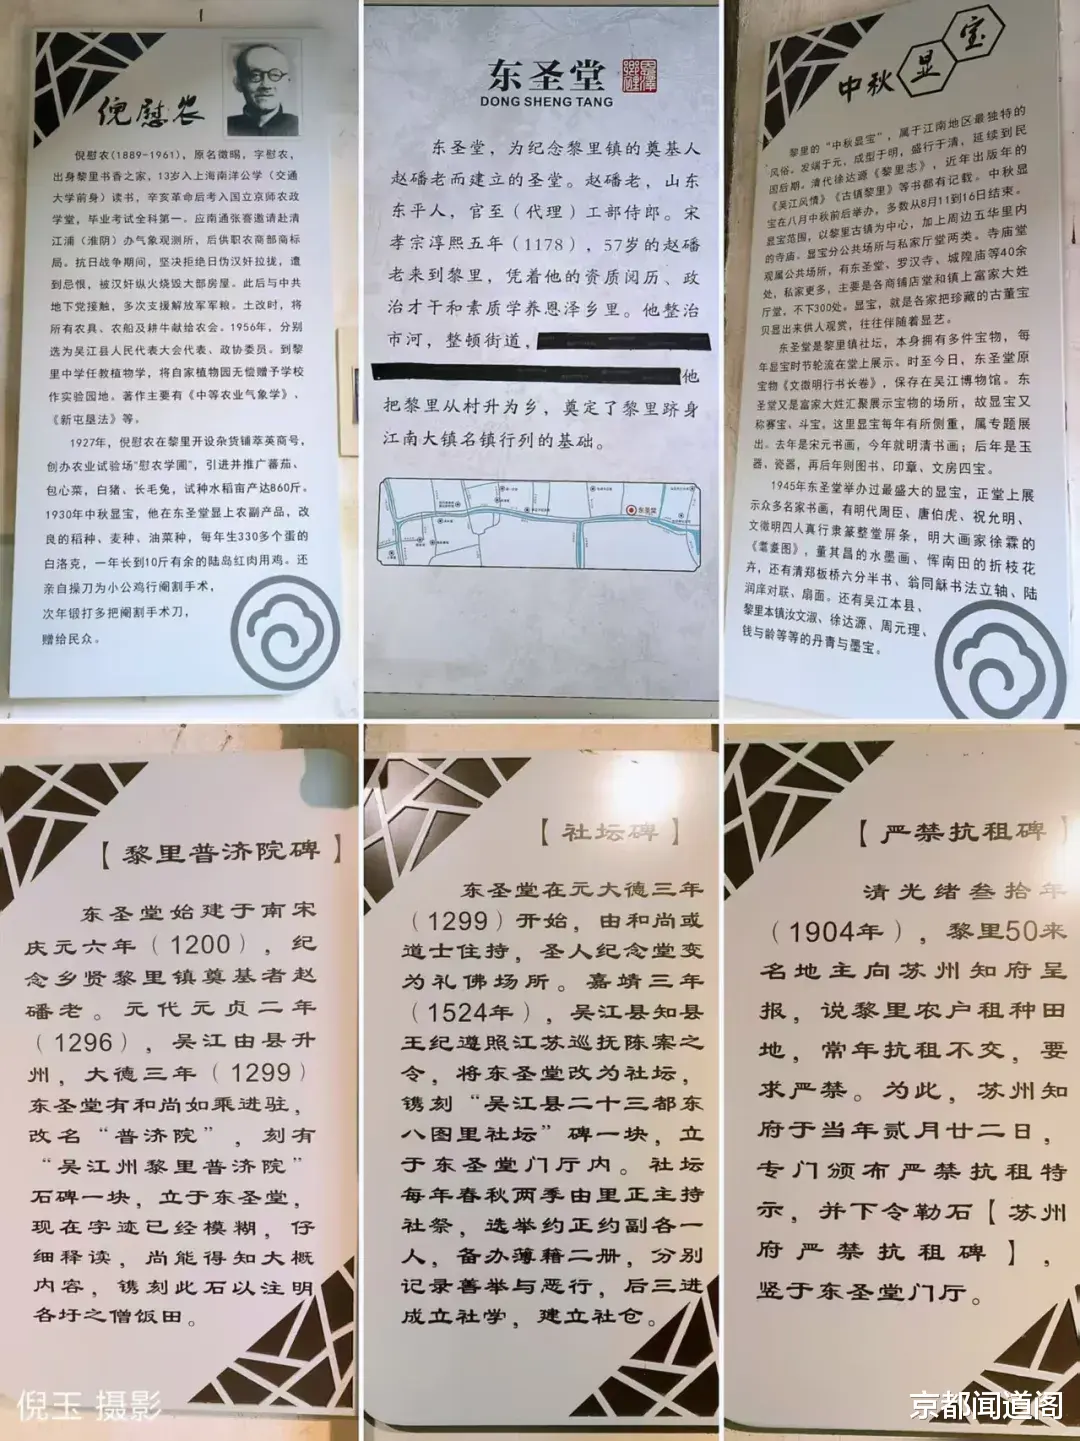 倪慰农
倪慰农(1889-1961)，原名徵暘，字慰农，
出身黎里书香之家，13岁入上海南洋公学（交通
大学前身）读书，辛亥革命后考入国立京师农政
学堂，毕业考试全科第一。应南通张謇邀请赴清
江浦（淮阴）办气象观测所，后供职农商部商标
局。抗日战争期间，坚决拒绝日伪汉奸拉拢，遭
到忌恨，被汉奸纵火烧毁大部房屋。此后与中共
地下党接触，多次支援解放军军粮。土改时，将
所有农具、农船及耕牛献给农会。1956年，分别
选为吴江县人民代表大会代表、政协委员。到黎
里中学任教植物学，将自家植物园无偿赠予学校
作实验园地。著作主要有《中等农业气象学》、
《新屯垦法》等。
1927年，倪慰农在黎里开设杂货铺萃英商号，
创办农业试验场“慰农学圃”，引进并推广蕃茄、
包心菜，白猪、长毛兔，试种水稻亩产达860斤。
1930年中秋显宝，他在东圣堂显上农副产品，改
良的稻种、麦种、油菜种，每年生330多个蛋的
白洛克，一年长到10斤有余的陆岛红肉用鸡。还
亲自操刀为小公鸡行阉割手术，
次年锻打多把阉割手术刀，
赠给民众。
东圣堂
DONG SHENG TANG
东圣堂，为纪念黎里镇的奠基人
赵磻老而建立的圣堂。赵磻老，山东
东平人，官至（代理）工部侍郎。宋
孝宗淳熙五年（1178），57岁的赵磻
老来到黎里，凭着他的资质阅历、政
治才干和素质学养恩泽乡里。他整治
市河，整顿街道，
他
把黎里从村升为乡，奠定了黎里跻身
江南大镇名镇行列的基础。
东圣堂
中秋显宝
黎里的“中秋显宝”，属于江南地区最独特的
风俗。发端于元，成型于明，盛行于清，延续到民
国后期。清代徐达源《黎里志》，近年出版年的
《吴江风情》《古镇黎里》等书都有记载。中秋显
宝在八月中秋前后举办，多数从8月11到16日结束。
显宝范围，以黎里古镇为中心，加上周边五华里内
的寺庙。显宝分公共场所与私家厅堂两类。寺庙堂
观属公共场所，有东圣堂、罗汉寺、城隍庙等40余
处，私家更多，主要是各商铺店堂和镇上富家大姓
厅堂，不下300处。显宝，就是各家把珍藏的古董宝
贝显出来供人观赏，往往伴随着显艺。
东圣堂是黎里镇社坛，本身拥有多件宝物，每
年显宝时节轮流在堂上展示。时至今日，东圣堂原
宝物《文徵明行书长卷》，保存在吴江博物馆。东
圣堂又是富家大姓汇聚展示宝物的场所，故显宝又
称赛宝、斗宝。这里显宝每年有所侧重，属专题展
出。去年是宋元书画，今年就明清书画；后年是玉
器、瓷器，再后年则图书、印章、文房四宝。
1945年东圣堂举办过最盛大的显宝，正堂上展
示众多名家书画，有明代周臣、唐伯虎、祝允明、
文徵明四人真行隶篆整堂屏条，明大画家徐霖的
《耄耋图》，董其昌的水墨画、恽南田的折枝花
卉，还有清郑板桥六分半书、翁同龢书法立轴、陆
润庠对联、扇面。还有吴江本县、
黎里本镇汝文淑、徐达源、周元理、
钱与龄等等的丹青与墨宝。
【黎里普济院碑】
东圣堂始建于南宋
庆元六年（1200），纪
念乡贤黎里镇奠基者赵
磻老。元代元贞二年
（1296），吴江由县升
州，大德三年（1299）
东圣堂有和尚如乘进驻，
改名“普济院”，刻有
“吴江州黎里普济院”
石碑一块，立于东圣堂，
现在字迹已经模糊，仔
细释读，尚能得知大概
内容，镌刻此石以注明
各圩之僧饭田。
【社坛碑】
东圣堂在元大德三年
（1299）开始，由和尚或
道士住持，圣人纪念堂变
为礼佛场所。嘉靖三年
（1524年），吴江县知县
王纪遵照江苏巡抚陈案之
令，将东圣堂改为社坛，
镌刻“吴江县二十三都东
八图里社坛”碑一块，立
于东圣堂门厅内。社坛
每年春秋两季由里正主持
社祭，选举约正约副各一
人，备办薄藉二册，分别
记录善举与恶行，后三进
成立社学，建立社仓。
【严禁抗租碑】
清光绪叁拾年
（1904年），黎里50来
名地主向苏州知府呈
报，说黎里农户租种田
地，常年抗租不交，要
求严禁。为此，苏州知
府于当年贰月廿二日，
专门颁布严禁抗租特
示，并下令勒石【苏州
府严禁抗租碑】，
竖于东圣堂门厅。
倪玉 摄影
京都闻道阁